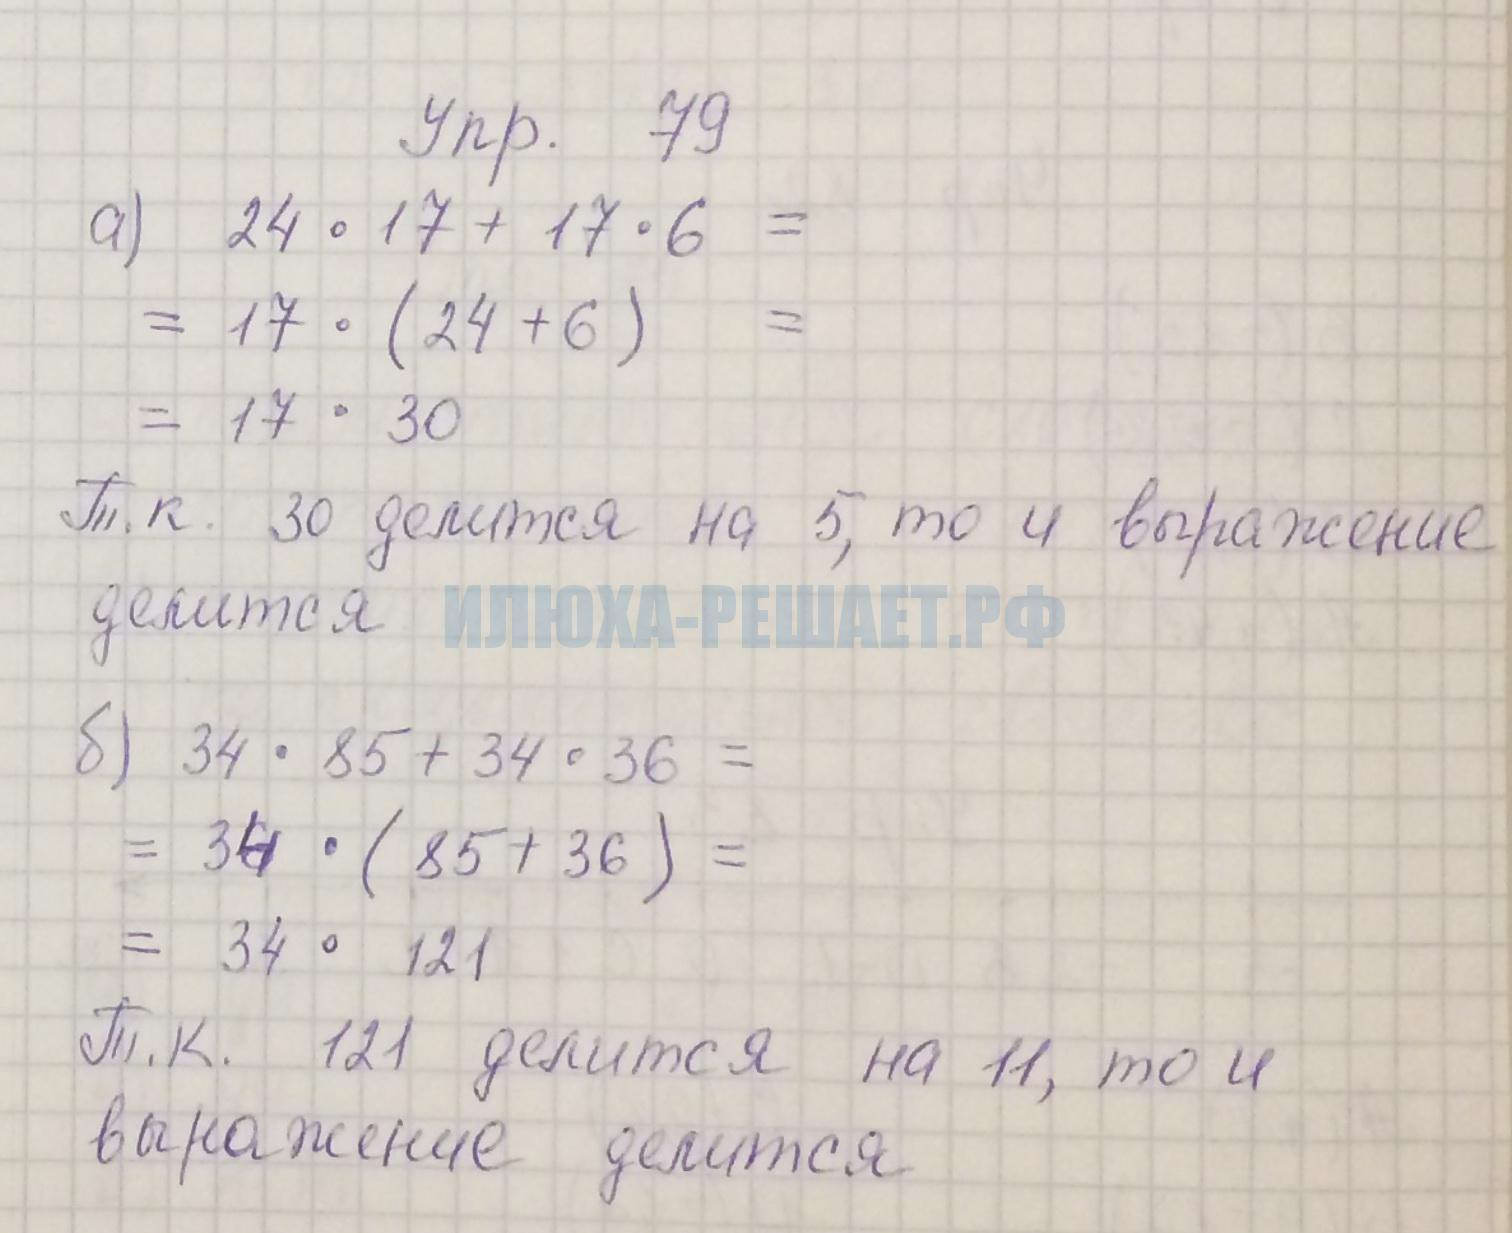 Упр. 79
а) 24 • 17 + 17 • 6 =
= 17 • (24 + 6) =
= 17 • 30
Т.к. 30 делится на 5, то и выражение
делится
ИЛЮХА-РЕШАЕТ.РФ
б) 34 • 85 + 34 • 36 =
= 34 • (85 + 36) =
= 34 • 121
Т.к. 121 делится на 11, то и
выражение делится